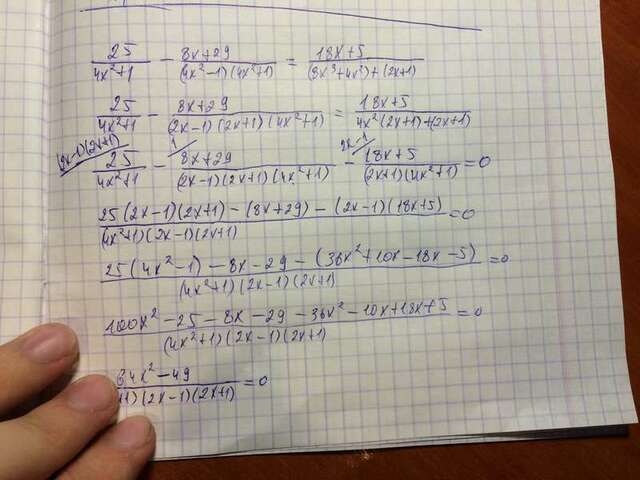 25/(4x²+1) - (8x+29)/((4x²-1)(4x²+1)) = (18x+5)/((8x³+4x²)+(2x+1))
25/(4x²+1) - (8x+29)/((2x-1)(2x+1)(4x²+1)) = (18x+5)/(4x²(2x+1)+(2x+1))
(2x-1)(2x+1) 1 2x-1
25/(4x²+1) - (8x+29)/((2x-1)(2x+1)(4x²+1)) - (18x+5)/((2x+1)(4x²+1)) = 0
(25(2x-1)(2x+1) - (8x+29) - (2x-1)(18x+5))/((4x²+1)(2x-1)(2x+1)) = 0
(25(4x²-1) - 8x - 29 - (36x²+10x-18x-5))/((4x²+1)(2x-1)(2x+1)) = 0
(100x² - 25 - 8x - 29 - 36x² - 10x + 18x + 5)/((4x²+1)(2x-1)(2x+1)) = 0
(64x² - 49)/(+1)(2x-1)(2x+1) = 0